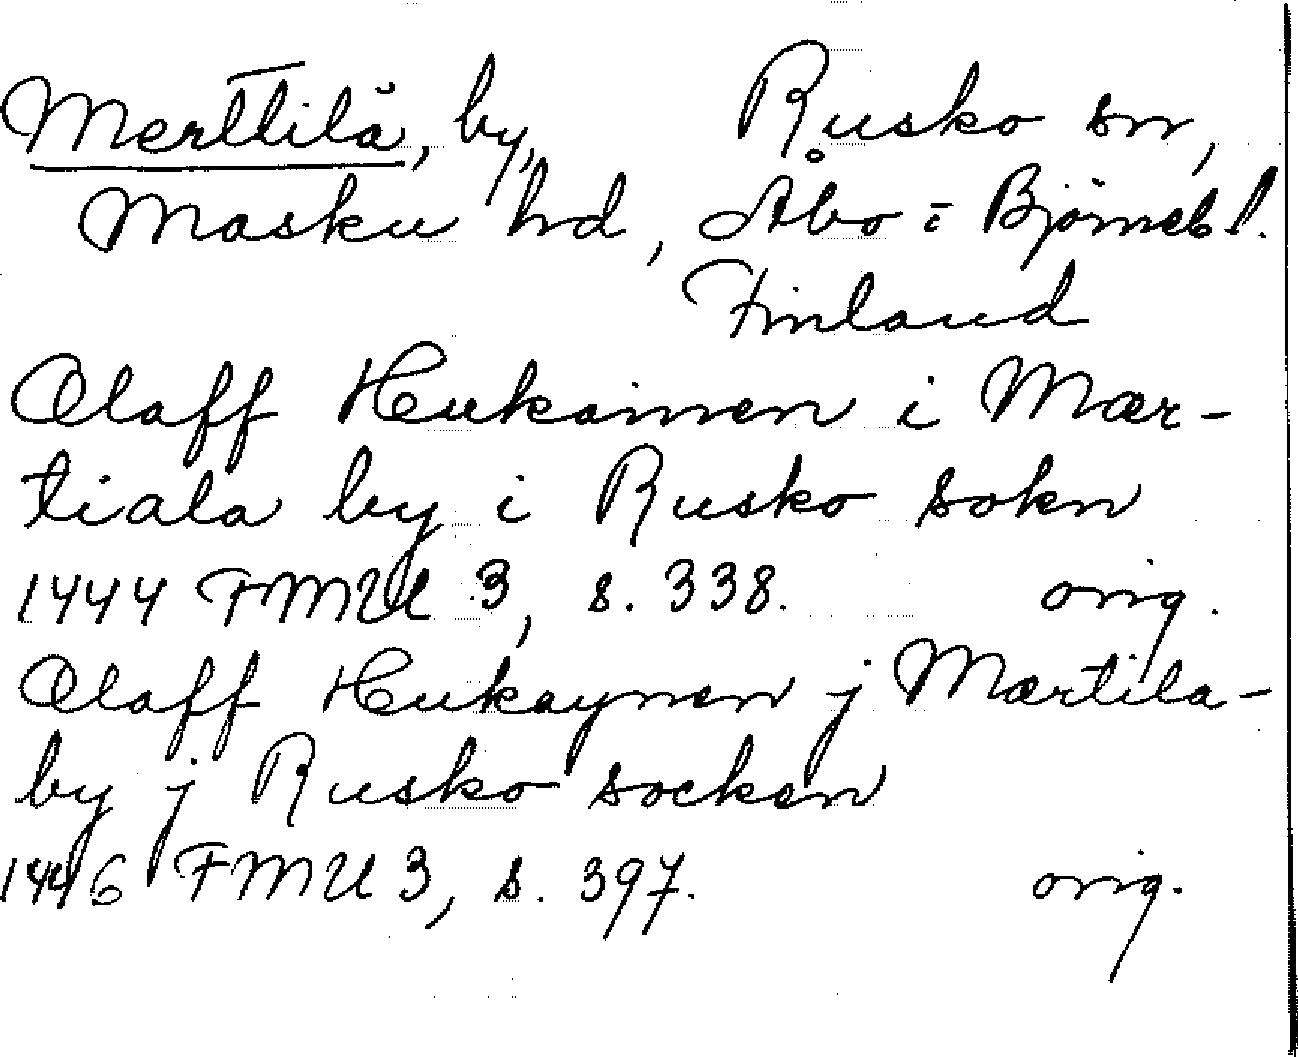 Merttilä, by, Rusko sn,
Masku hd, Åbo i Björneb l.
Finland
Olaff Hukainen i Mær-
tiala by i Rusko sokn
1444 FMU 3, s. 338. orig.
Olaff Hukaynen j Mærtila-
by j Rusko socken
1446 FMU 3, s. 397. orig.